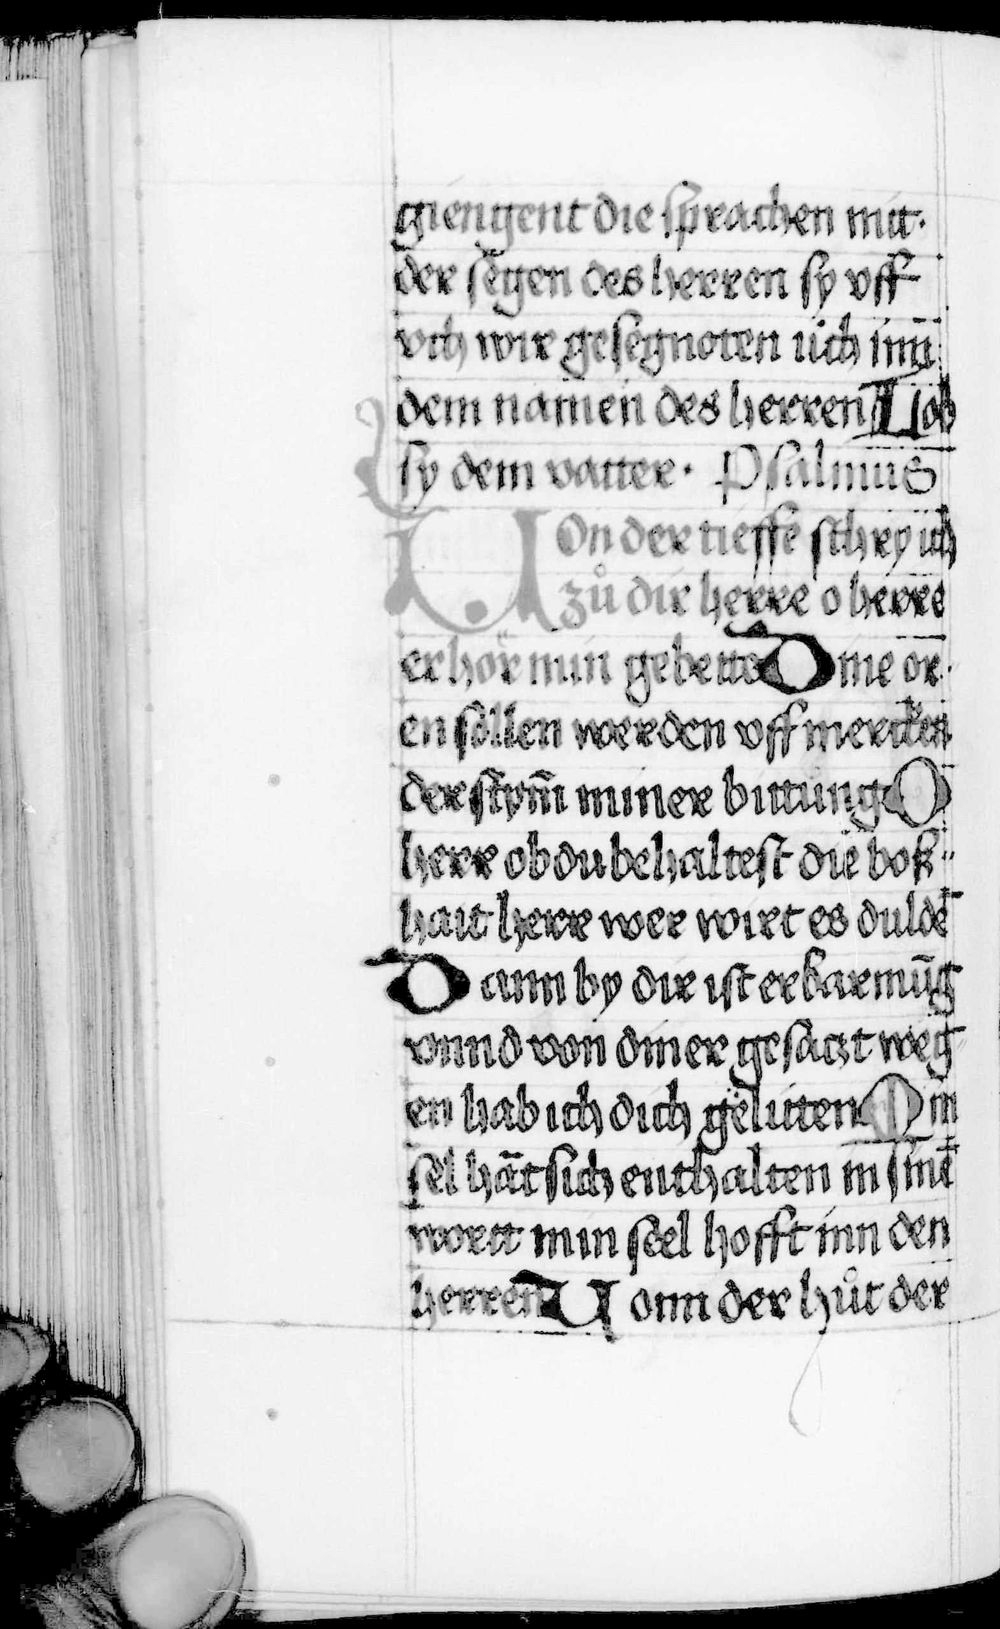 giengent die sprachen mit·
der segen des herren sy vff
vch wir gesegnoten üch inn
dem namen des herren Lob
sy dem vatter· Psalmus
VOn der tieffe schry ich
zů dir herre o herre
erhör min gebette Dine or·
en söllen werden vff merckē
der stym̄ miner bittung O
herr ob du behaltest die boß"
hait herr wer wirt es duldē
Dann by dir ist erbarmūg
vnnd von diner gesaczt weg
en hab ich dich gelitten Min
sel hāt sich enthalten in sinē
wortt min seel hofft inn den
herren Vonn der hůt der